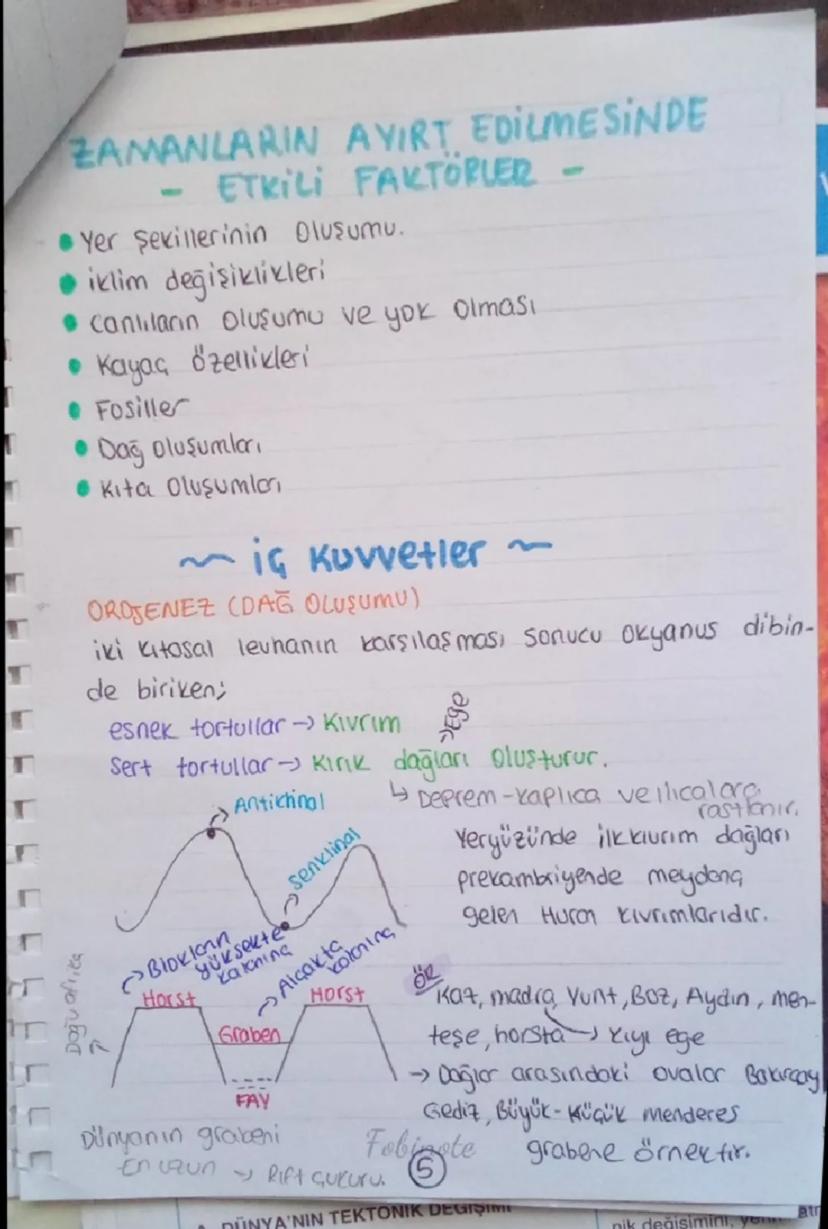 ZAMANLARIN AYIRT EDİLMESİNDE
- ETKİLİ FAKTÖRLER -
• Yer şekillerinin oluşumu.
• iklim değişiklikleri
• canlıların oluşumu ve yok olması
• Kayaç özellikleri
• Fosiller
• Dağ oluşumları
• Kıta oluşumları
~ iç Kuvvetler ~
OROJENEZ (DAĞ OLUŞUMU)
iki kıtasal levhanın karşılaşması sonucu okyanus dibin-
de biriken;
esnek tortullar → Kıvrım
→Ege
Sert tortullar → Kırık dağları oluşturur.
↳ Deprem-kaplıca ve ılıcalara
rastlanır.
Antiklinal
Senklinal
Yeryüzünde ilk kıvrım dağları
prekambriyende meydana
gelen Huron kıvrımlarıdır.
→ Blokların
yüksekte
kalanına
→ Alçakta
kalanına
Horst
Graben
Horst
FAY
Doğu Afrika
ÖR
Kaz, madra, Yunt, Boz, Aydın, men-
teşe, horsta → Kıyı ege
→ Dağlar arasındaki ovalar Bakırçay
Gediz, Büyük-Küçük menderes
grabene örnektir.
Dünyanın grabeni
En uzun → Rift çukuru.
Fobinote
5
DÜNYA'NIN TEKTONİK DEĞİŞİMİ
nik değişimini,